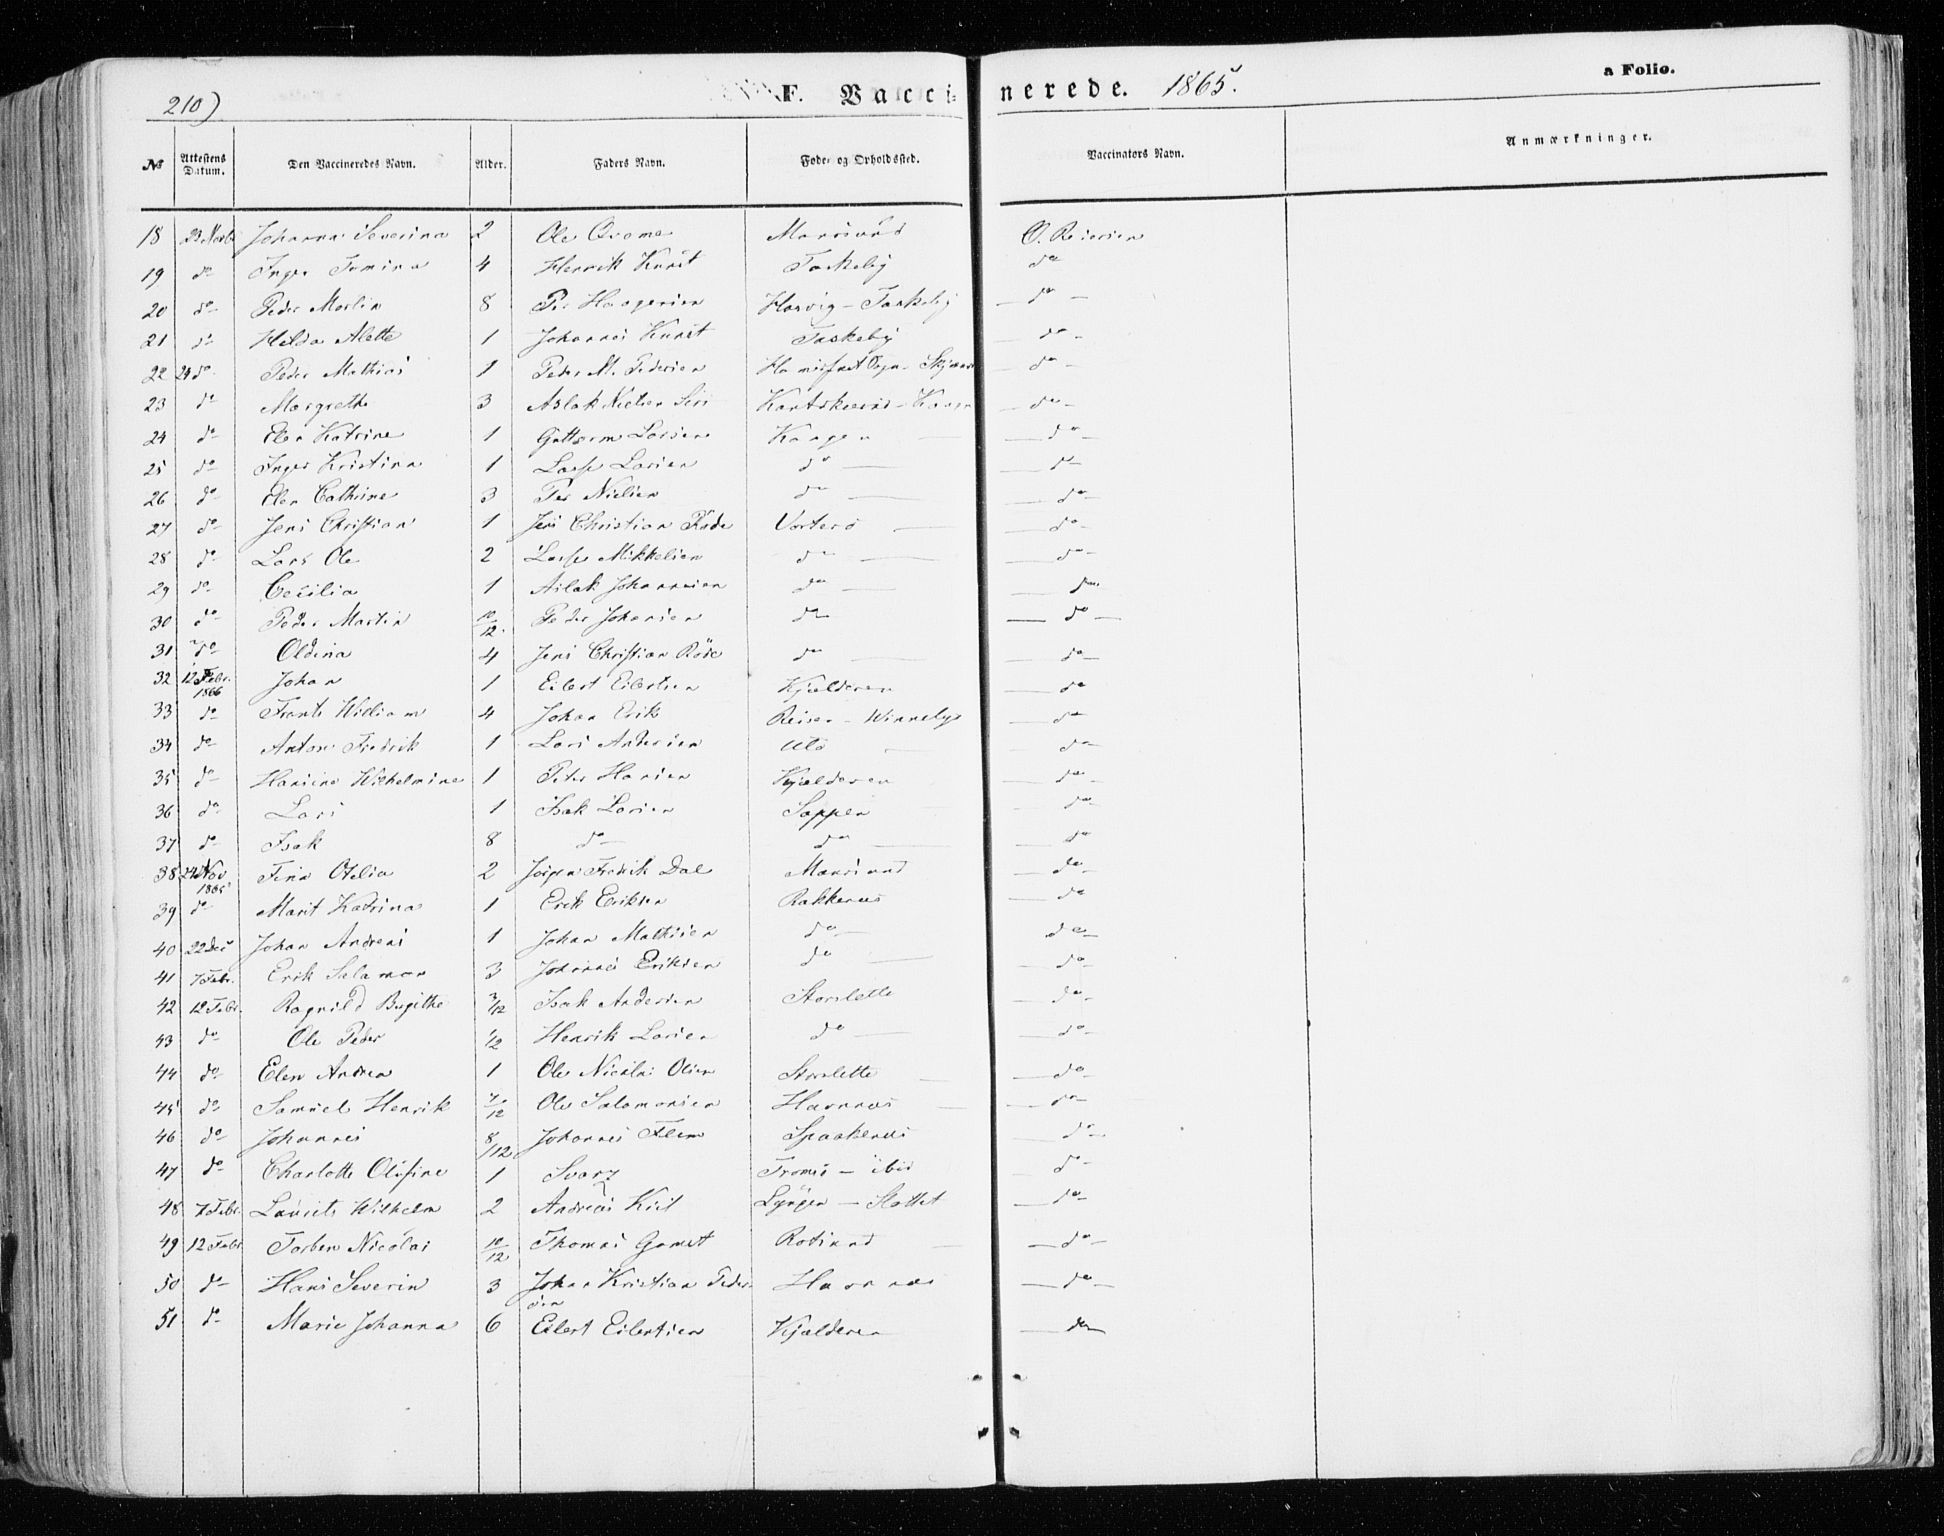 210)
F. Vaccinerede. 1865.
a Folio.
No Attestens Datum. Den Vaccineredes Navn. Alder. Faders Navn. Føde- og Opholdssted. Vaccinators Navn. Anmærkninger.
18 23 Johanna Severina 2 Ole Maursund O. Reiersen
19 do Inger 4 Henrik Kunst Taskeby do
20 do Peder Martin 8 Per Haagensen Havnig - Taskeby do
21 do Hilda Alette 1 Johannes Kunst Taskeby do
22 24 do Peder Mathias 1 Peder M. Pedersen do
23 do Margrethe 3 Aslak Nielsen do
24 do Elen Katrine 1 Guttorm Larsen Kaagen do
25 do Inger Kristina 1 Lasse Larsen do do
26 do Elen Cathrine 3 Per Nielsen do do
27 do Jens Christian 1 Jens Christian Röde Vorterö do
28 do Lars Ole 2 Lasse Mikkelsen do do
29 do Cecilia 1 Aslak Johannesen do do
30 do Peder Martin 10/12 Peder Johansen do do
31 do Oldina 4 Jens Christian Röde do do
32 12 Febr. 1866 Johan 1 Eilert Eilertsen Kjelderen do
33 do Frants William 4 Johan Erik Reisen - do
34 do Anton Fredrik 1 Lars Andersen Utö do
35 do Hansine Wilhelmine 1 Peter Hansen Kjelderen do
36 do Lars 1 Isak Larsen Sappen do
37 do Isak 8 do do do
38 24 Nov 1865 Fina Otelia 2 Jörgen Fredrik Dal Maursund do
39 do Marit Katrina 1 Erik Eriksen Rakkenæs do
40 22 Des Johan Andreas 1 Johan Mathisen do do
41 7 Febr. Erik Salamon 3 Johannes Eriksen do do
42 12 Febr. Ragnild Birgithe 3/12 Isak Andersen Storslette do
43 do Ole Peder 1/2 Henrik Larsen do do
44 do Elen Andrea 1 Ole Nicolai Olsen Storslette do
45 do Samuel Henrik 7/12 Ole Salamonsen Havnnæs do
46 do Johannes 8/12 Johannes Flem Spaakenæs do
47 do Charlotte Olufine 1 Svarz Tromsö - ibid do
48 7 Febr. Laurits Wilhelm 2 Andreas Kiil Lyngen - Slottet do
49 12 Febr. Torben Nicolai 10/12 Thomas Gamst Rotsund do
50 do Hans Severin 3 Johan Kristian Pedersen Havnnæs do
51 do Marie Johanna 6 Eilert Eilertsen Kjelderen do